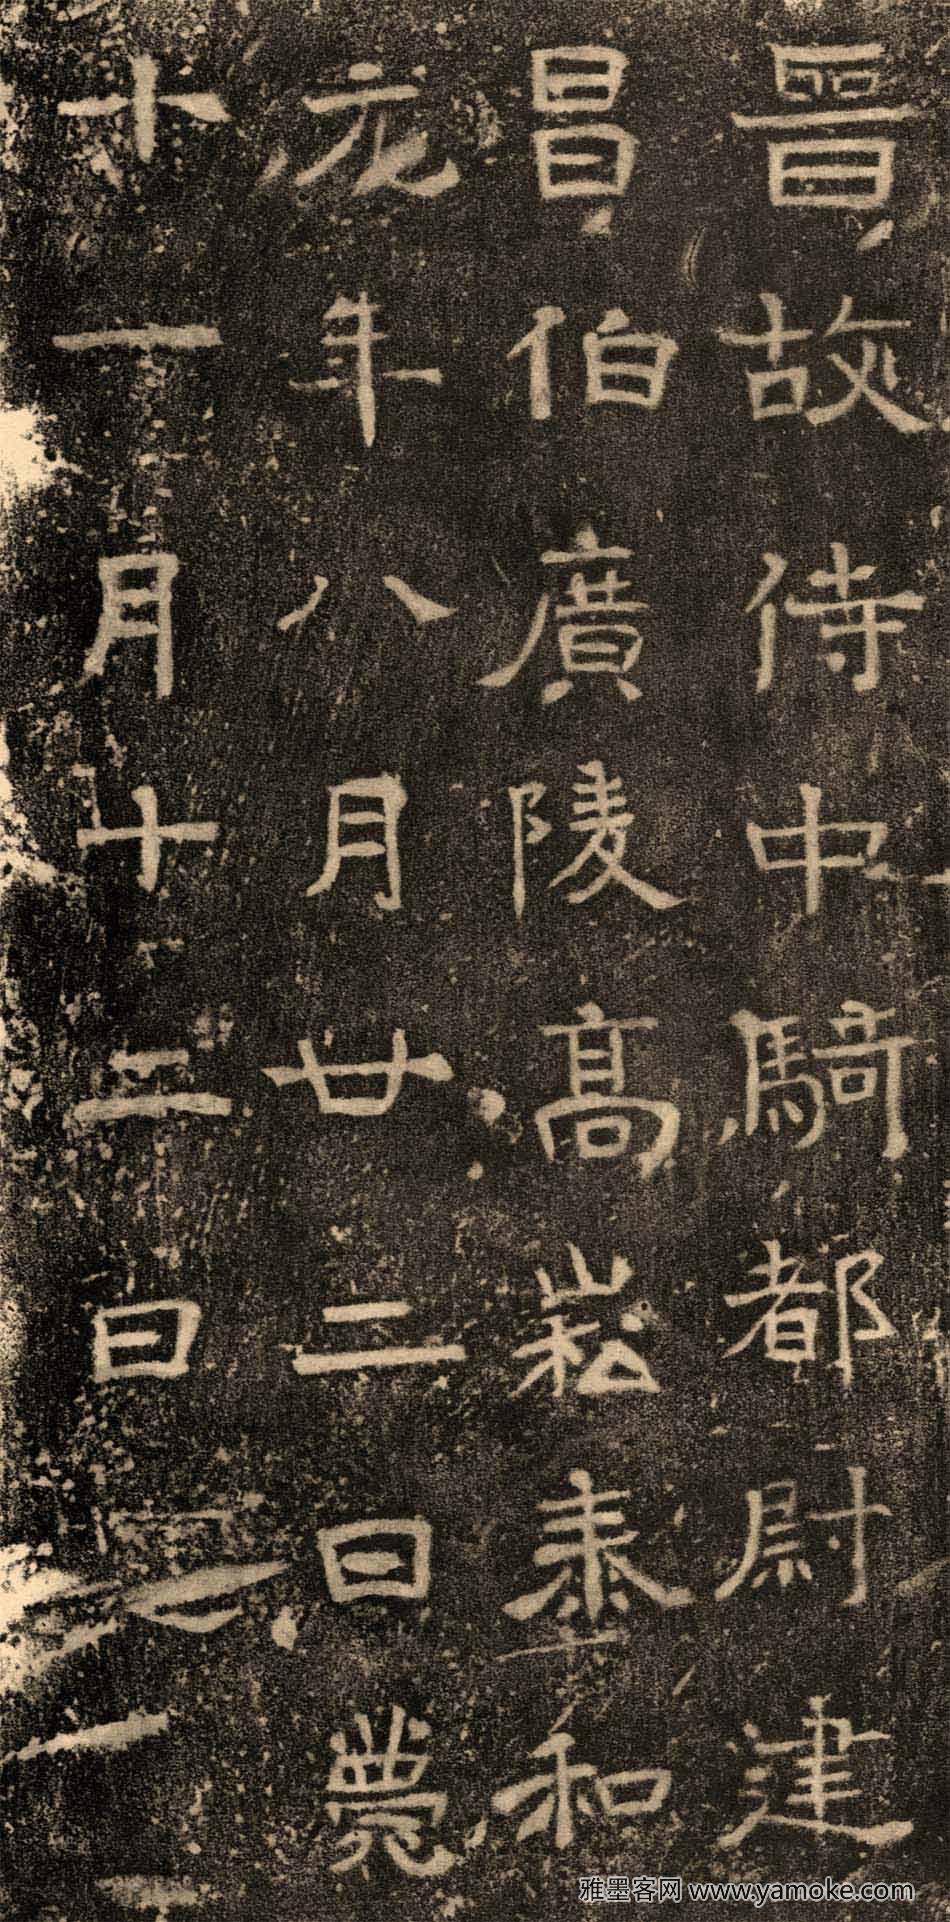 晉故侍中騎都尉建
昌伯廣陵高崧泰和
元年八月廿二日薨
十一月十二日
雅墨客网 www.yamoke.com